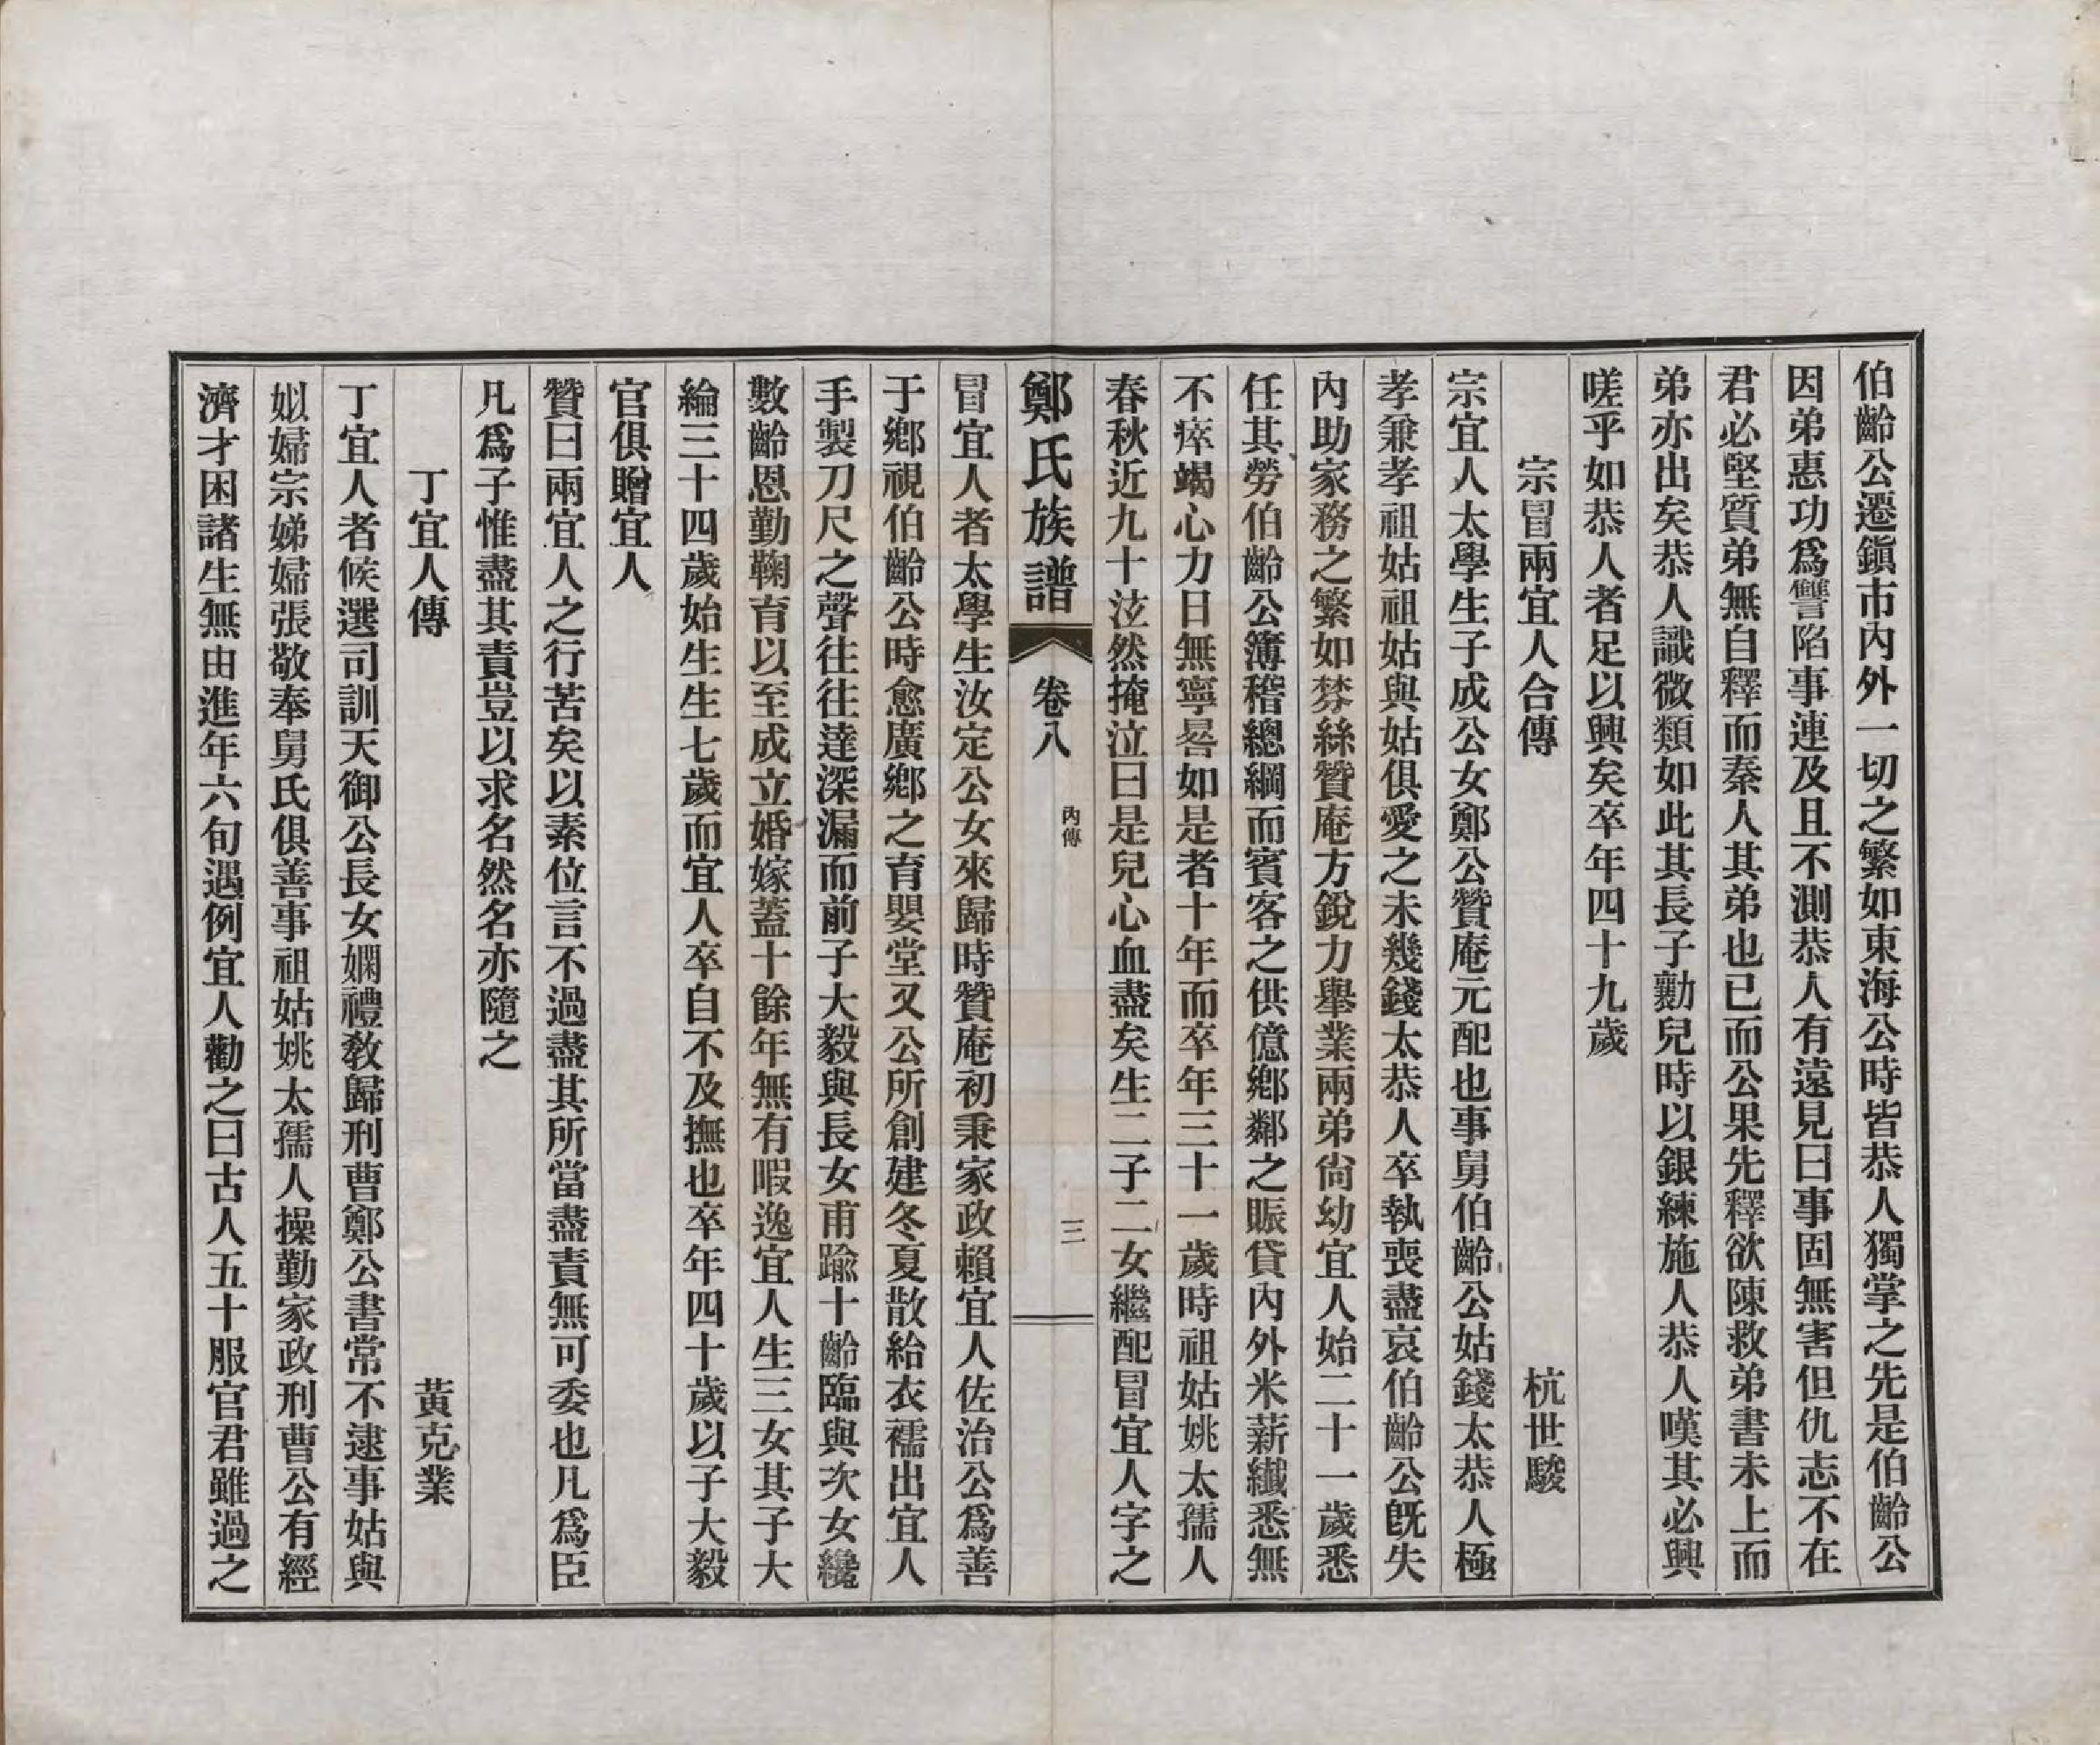 伯齡公遷鎭市內外一切之繁如東海公時皆恭人獨掌之先是伯齡公
因弟惠功爲讐陷事連及且不測恭人有遠見曰事固無害但仇志不在
君必堅質弟無自釋而秦人其弟也已而公果先釋欲陳救弟書未上而
弟亦出矣恭人識微類如此其長子勷兒時以銀練施人恭人嘆其必興
嗟乎如恭人者足以興矣卒年四十九歲
宗冒兩宜人合傳　杭世駿
宗宜人太學生子成公女鄭公贊庵元配也事舅伯齡公姑錢太恭人極
孝兼孝祖姑祖姑與姑俱愛之未幾錢太恭人卒執喪盡哀伯齡公旣失
內助家務之繁如棼絲贊庵方銳力舉業兩弟尙幼宜人始二十一歲悉
任其勞伯齡公簿稽總綱而賓客之供億鄕鄰之賑貸內外米薪纖悉無
不瘁竭心力日無寧晷如是者十年而卒年三十一歲時祖姑姚太孺人
春秋近九十泫然掩泣曰是兒心血盡矣生二子二女繼配冒宜人字之
鄭氏族譜　卷八　內傳　三
冒宜人者太學生汝定公女來歸時贊庵初秉家政賴宜人佐治公爲善
于鄕視伯齡公時愈廣鄕之育嬰堂又公所創建冬夏散給衣襦出宜人
手製刀尺之聲往往達深漏而前子大毅與長女甫踰十齡臨與次女纔
數齡恩勤鞠育以至成立婚嫁蓋十餘年無有暇逸宜人生三女其子大
綸三十四歲始生生七歲而宜人卒自不及撫也卒年四十歲以子大毅
官俱贈宜人
贊曰兩宜人之行苦矣以素位言不過盡其所當盡責無可委也凡爲臣
凡爲子惟盡其責豈以求名然名亦隨之
丁宜人傳　黃克業
丁宜人者候選司訓天御公長女嫻禮敎歸刑曹鄭公書常不逮事姑與
姒婦宗娣婦張敬奉舅氏俱善事祖姑姚太孺人操勤家政刑曹公有經
濟才困諸生無由進年六旬遇例宜人勸之曰古人五十服官君雖過之